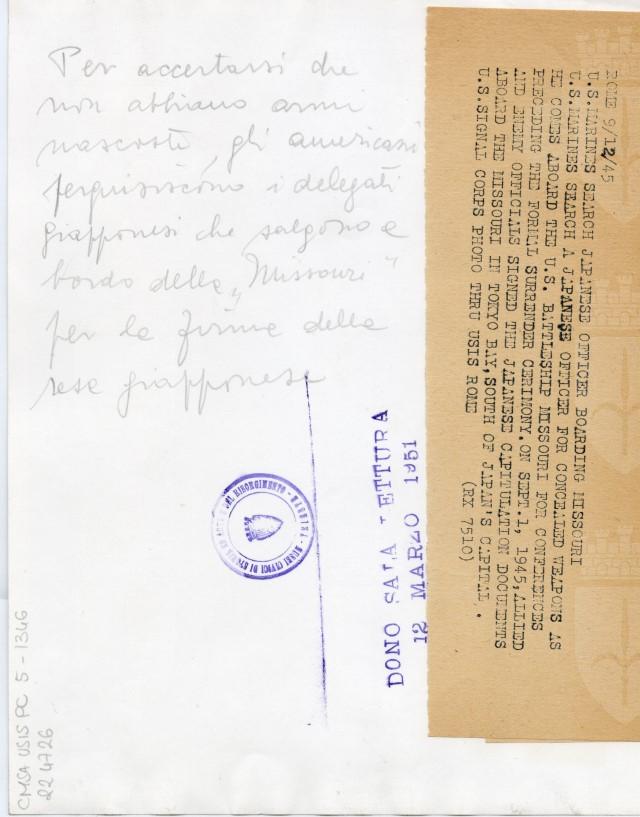 Per accertarsi che
non abbiano armi
nascoste, gli americani
perquisiscono i delegati
giapponesi che salgono a
bordo della „Missouri"
per la firma della
resa giapponese
ECME 9/12/45
U.S.MARINES SEARCH JAPANESE OFFICER BOARDING MISSOURI
U.S.MARINES SEARCH A JAPANESE OFFICER FOR CONCEALED WEAPONS AS
HE COMES ABOARD THE U.S. BATTLESHIP MISSOURI FOR CONFERENCES
PRECEDING THE FORMAL SURRENDER CERIMONY.ON SEPT.1, 1945,ALLIED
AND ENEMY OFFICIALS SIGNED THE JAPANESE CAPITULATION DOCUMENTS
ABOARD THE MISSOURI IN TOKYO BAY,SOUTH OF JAPAN'S CAPITAL.
U.S.SIGNAL CORPS PHOTO THRU USIS ROME (RX 7510)
DONO SALA LETTURA
12 MARZO 1951
MUSEI CIVICI DI STORIA ED ARTE E DEL RISORGIMENTO - TRIESTE
CMSA USIS PC 5 - 1346
224726